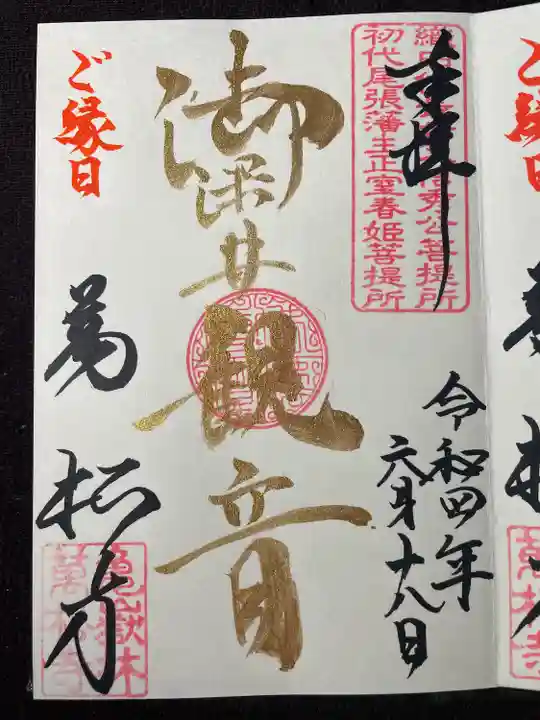 奉拝
秀公菩提所
初代尾張藩主正室春姫菩提所
令和四年
六月十八日
御深井観音
ご縁日
萬松寺
亀嶽林
萬松寺
ご縁日